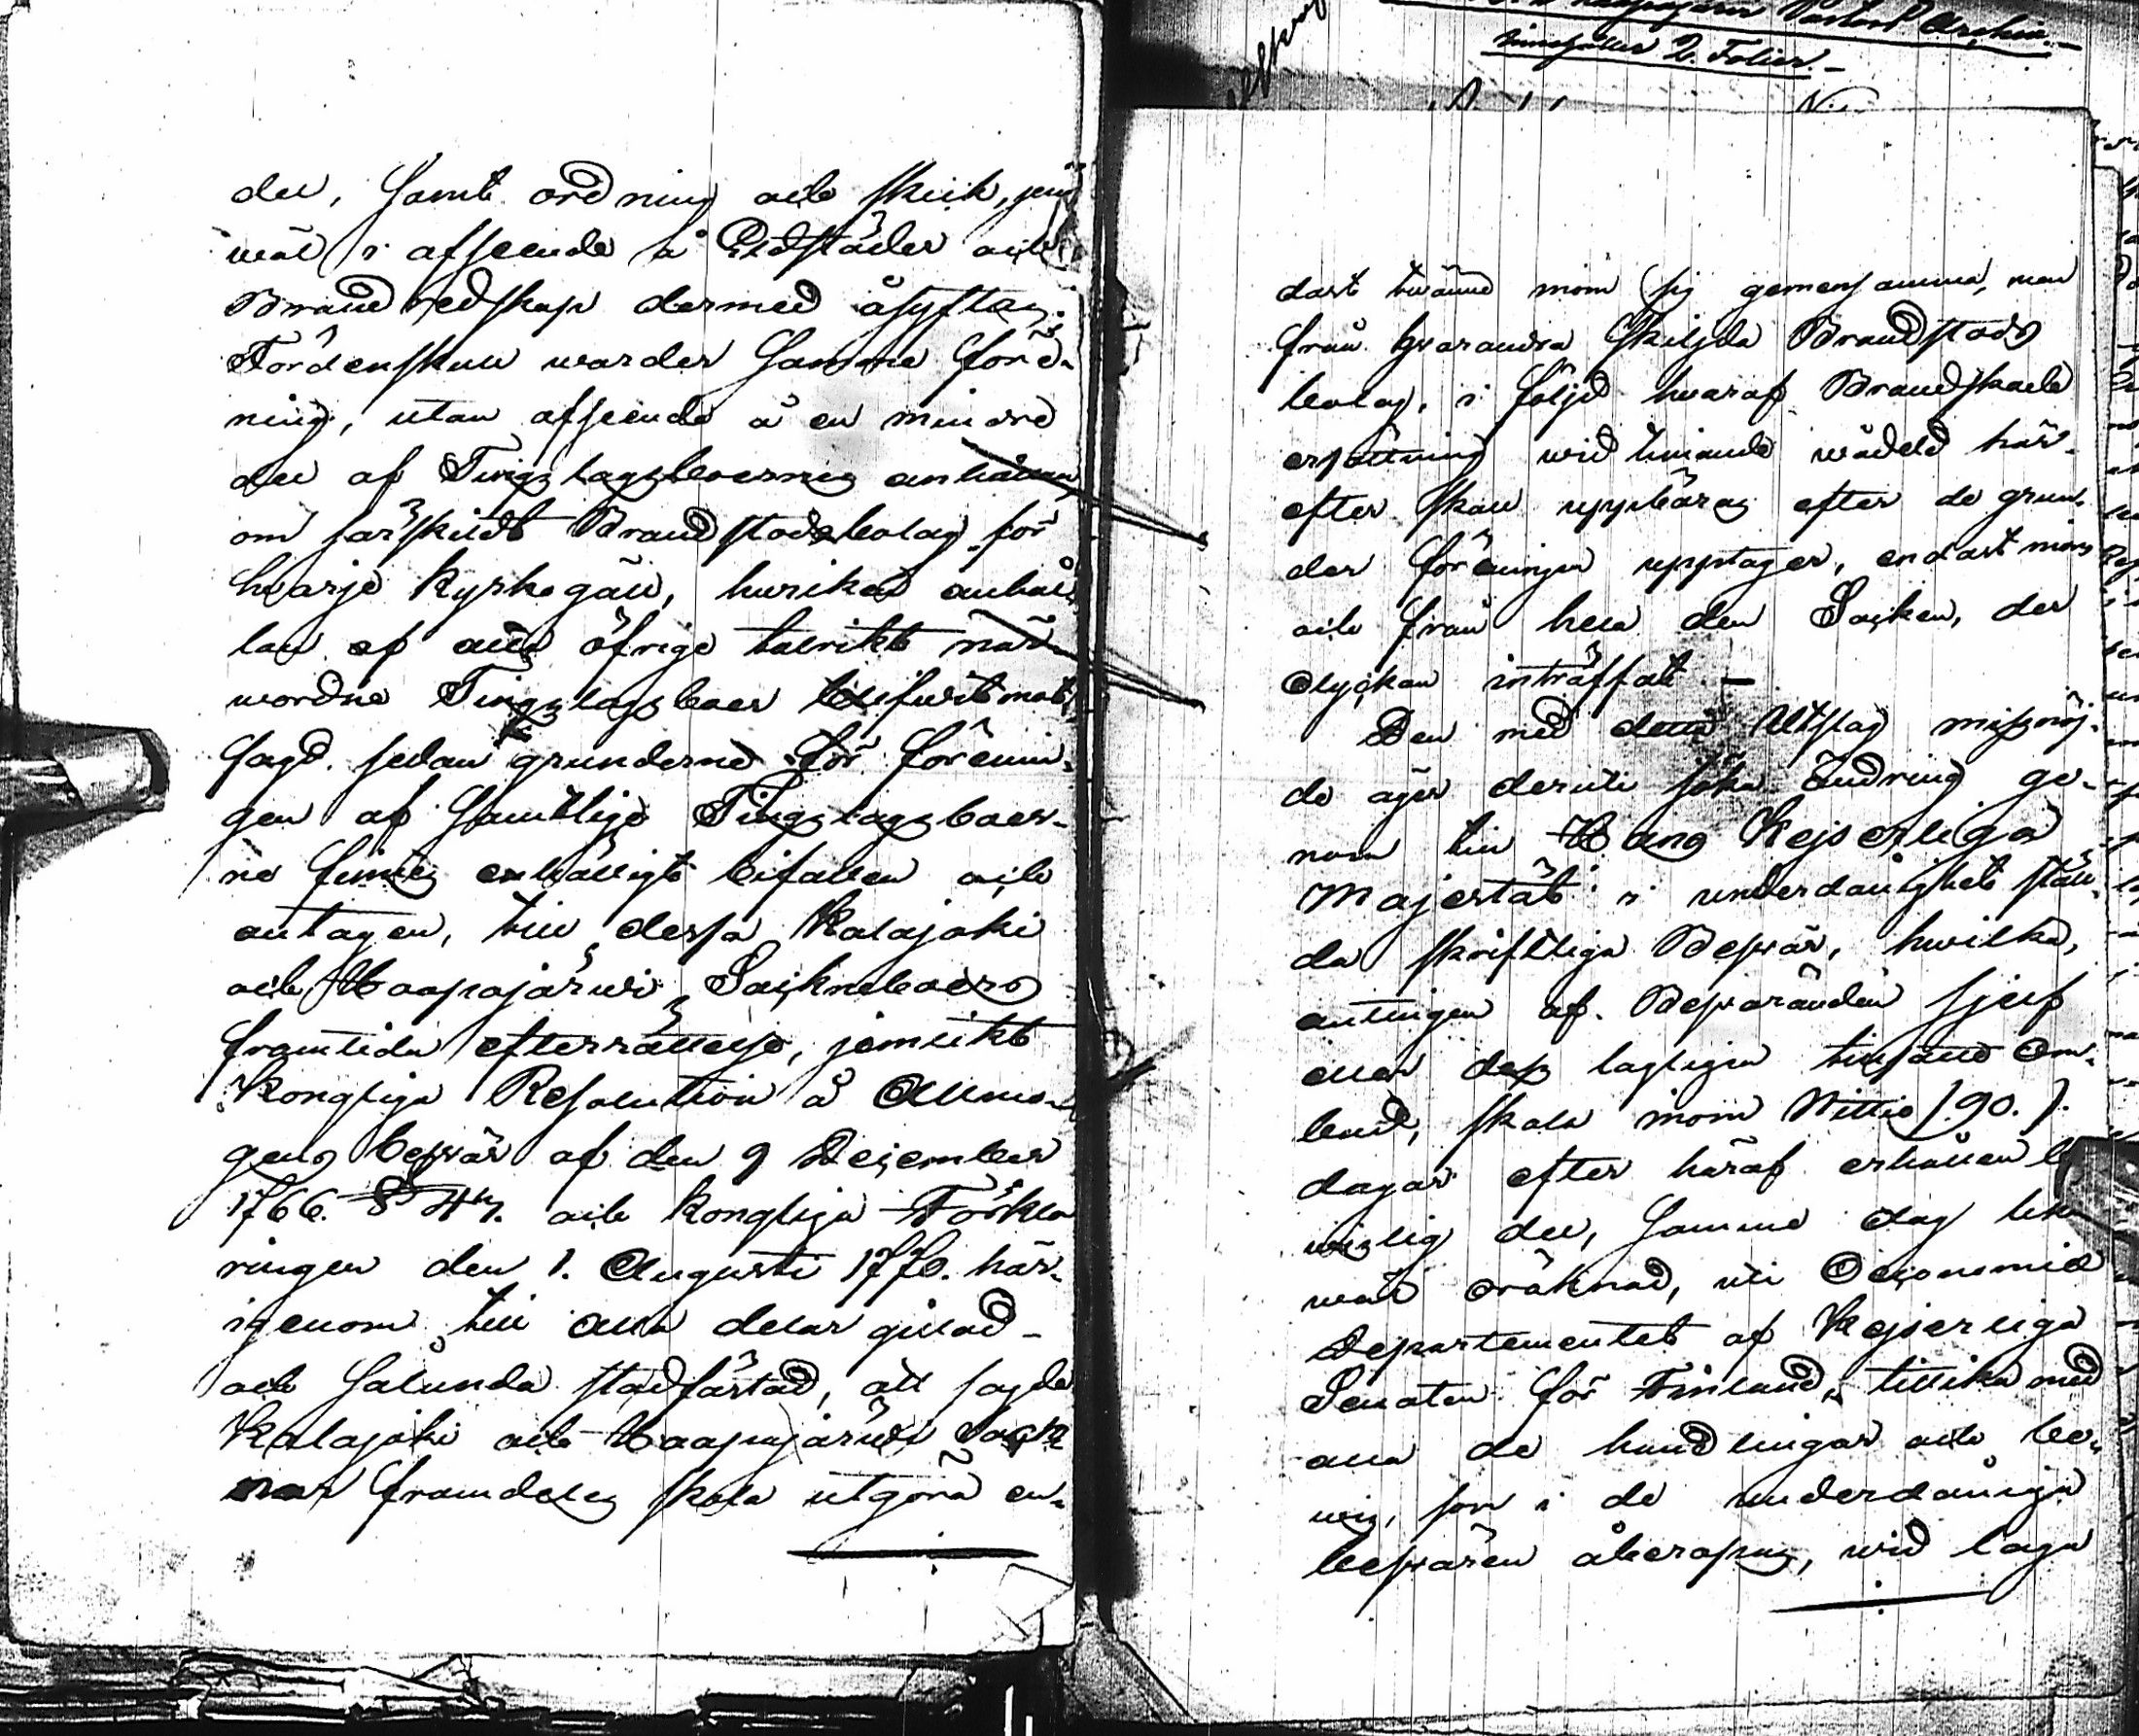 del, samt ordning och skick, jem
wäl i afseende å Eldstäder och
Brand redskap dermed åsyftas.
Fördenskull warder samma före-
ning, utan afseende å en mindre
del af Tingslagsboernes anhållan
om särskildt Brandstodsbolag för
hvarje Kyrkogäll, hurikad anhål-
lan af alla öfrige talrikt när-
wordne Tingslagsboer blifwit mot-
sagd, sedan grunderne för förenin-
gen af samtlige Tingslagsboer-
ne funnits enhälligt bifallen och
antagen, till dessa Kalajoki
och Haapajärwi Socknebaers
framtida efterrättelse, jemlikt
Kongliga Resolution å Allmo-
gens beswär af den 9 December
1766. § 47. och Kongliga Förkla
ringen den 1. Augusti 1770. här-
igenom till alla delar gillad-
och sålunda stadfästad, att sagde
Kalajoki och Haapajärwi Sock
nar framdeles skola utgöra en-
dast twänne inom sig gemensamma, men
från hvarandra skiljda Brandstods
bolag, i följd hvaraf Brandskade
ersättning wid timande wådeld här-
efter skall uppbäras efter de grun-
der föreningen upptager, endast inom
och från hela den Socken, der
olyckan inträffat. —
Den med detta Utslag missnöj-
de äger deruti söka ändring ge-
nom till Hans Kejserliga
Majestät i underdånighet stäl-
da skriftliga Beswär, hwilka,
antingen af Beswäranden sjelf
eller dess lagligen tillsände Om-
bud, skola inom Nittio /90./
dagar efter häraf erhållen be
wislig del, samma dag likw
wäl oräknad, uti Oeconomie
Departementet af Kejserliga
Senaten för Finland, tillika med
alla de handlingar och be-
wis, som i de underdåniga
beswären åberopas, wid laga